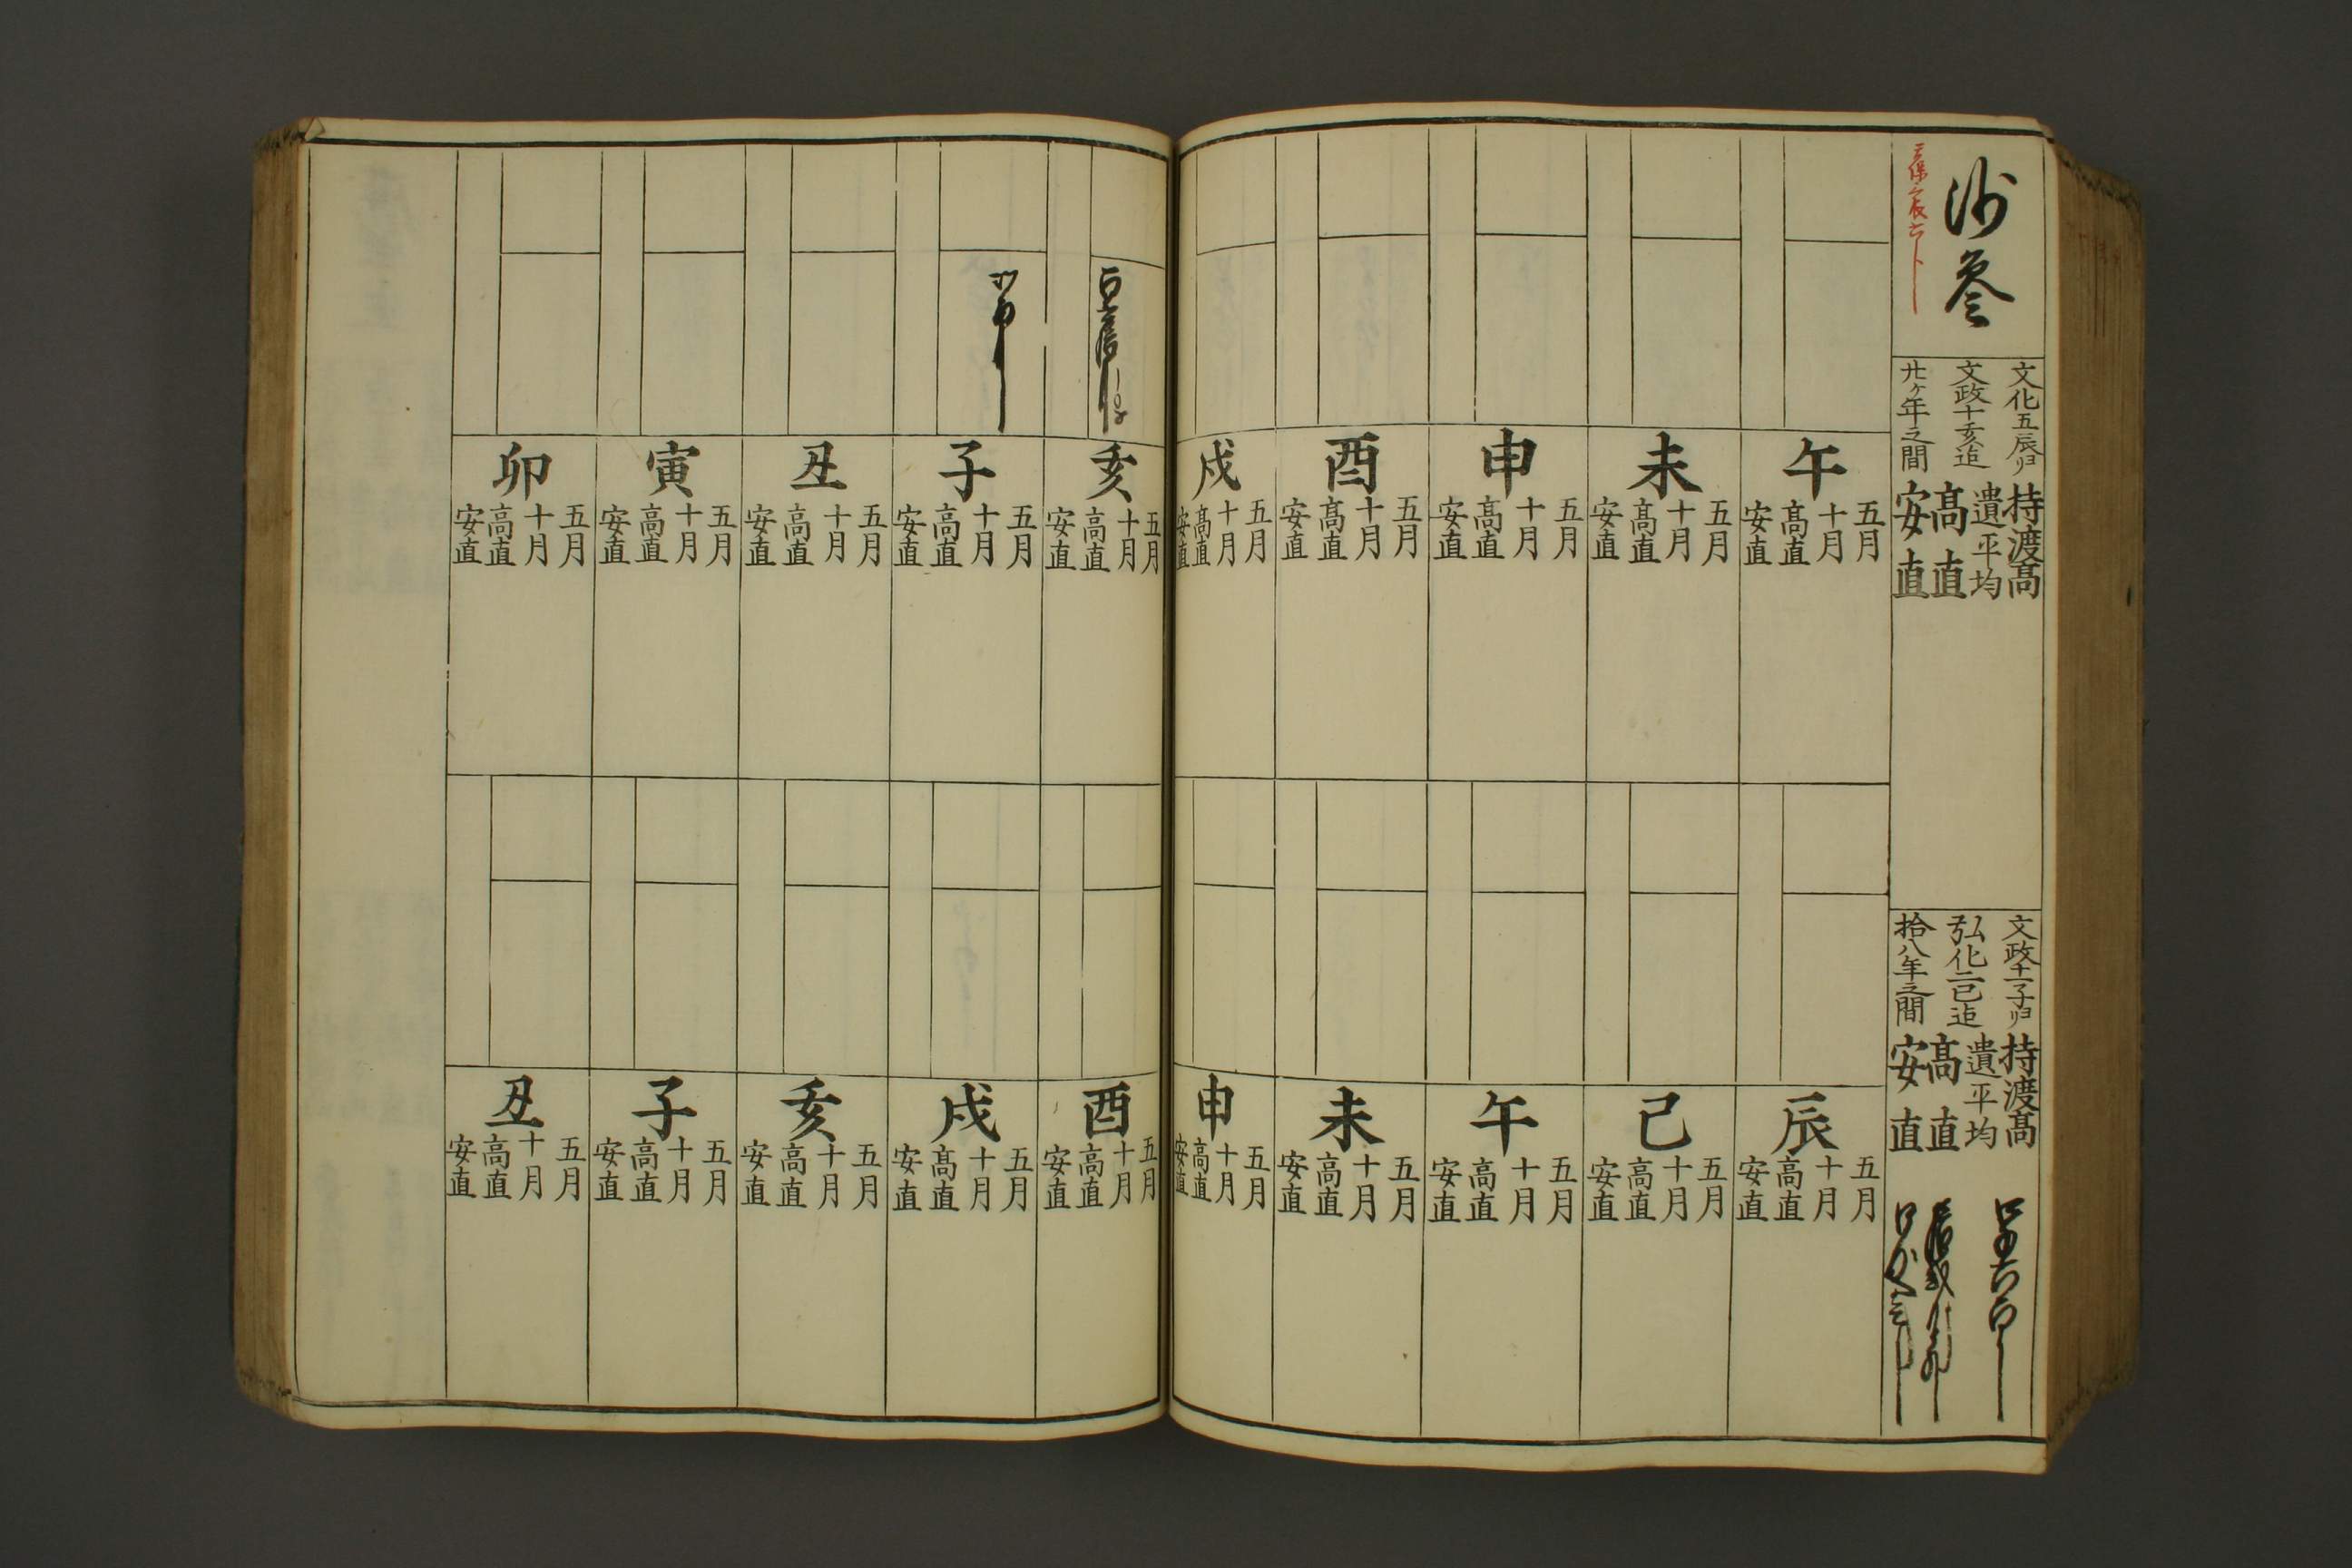 沙参
文化五辰ヨリ
文政十亥迠
廿ヶ年之間
持渡髙
遺平均
髙直
安直
文政十一子ヨリ
弘化二巳迠
拾八年之間
持渡髙
遺平均
髙直
安直
午
五月
十月
髙直
安直
未
五月
十月
髙直
安直
申
五月
十月
髙直
安直
酉
五月
十月
髙直
安直
戌
五月
十月
髙直
安直
亥
五月
十月
髙直
安直
子
五月
十月
髙直
安直
丑
五月
十月
髙直
安直
寅
五月
十月
髙直
安直
卯
五月
十月
髙直
安直
辰
五月
十月
髙直
安直
巳
五月
十月
髙直
安直
午
五月
十月
髙直
安直
未
五月
十月
髙直
安直
申
五月
十月
髙直
安直
酉
五月
十月
髙直
安直
戌
五月
十月
髙直
安直
亥
五月
十月
髙直
安直
子
五月
十月
髙直
安直
丑
五月
十月
髙直
安直